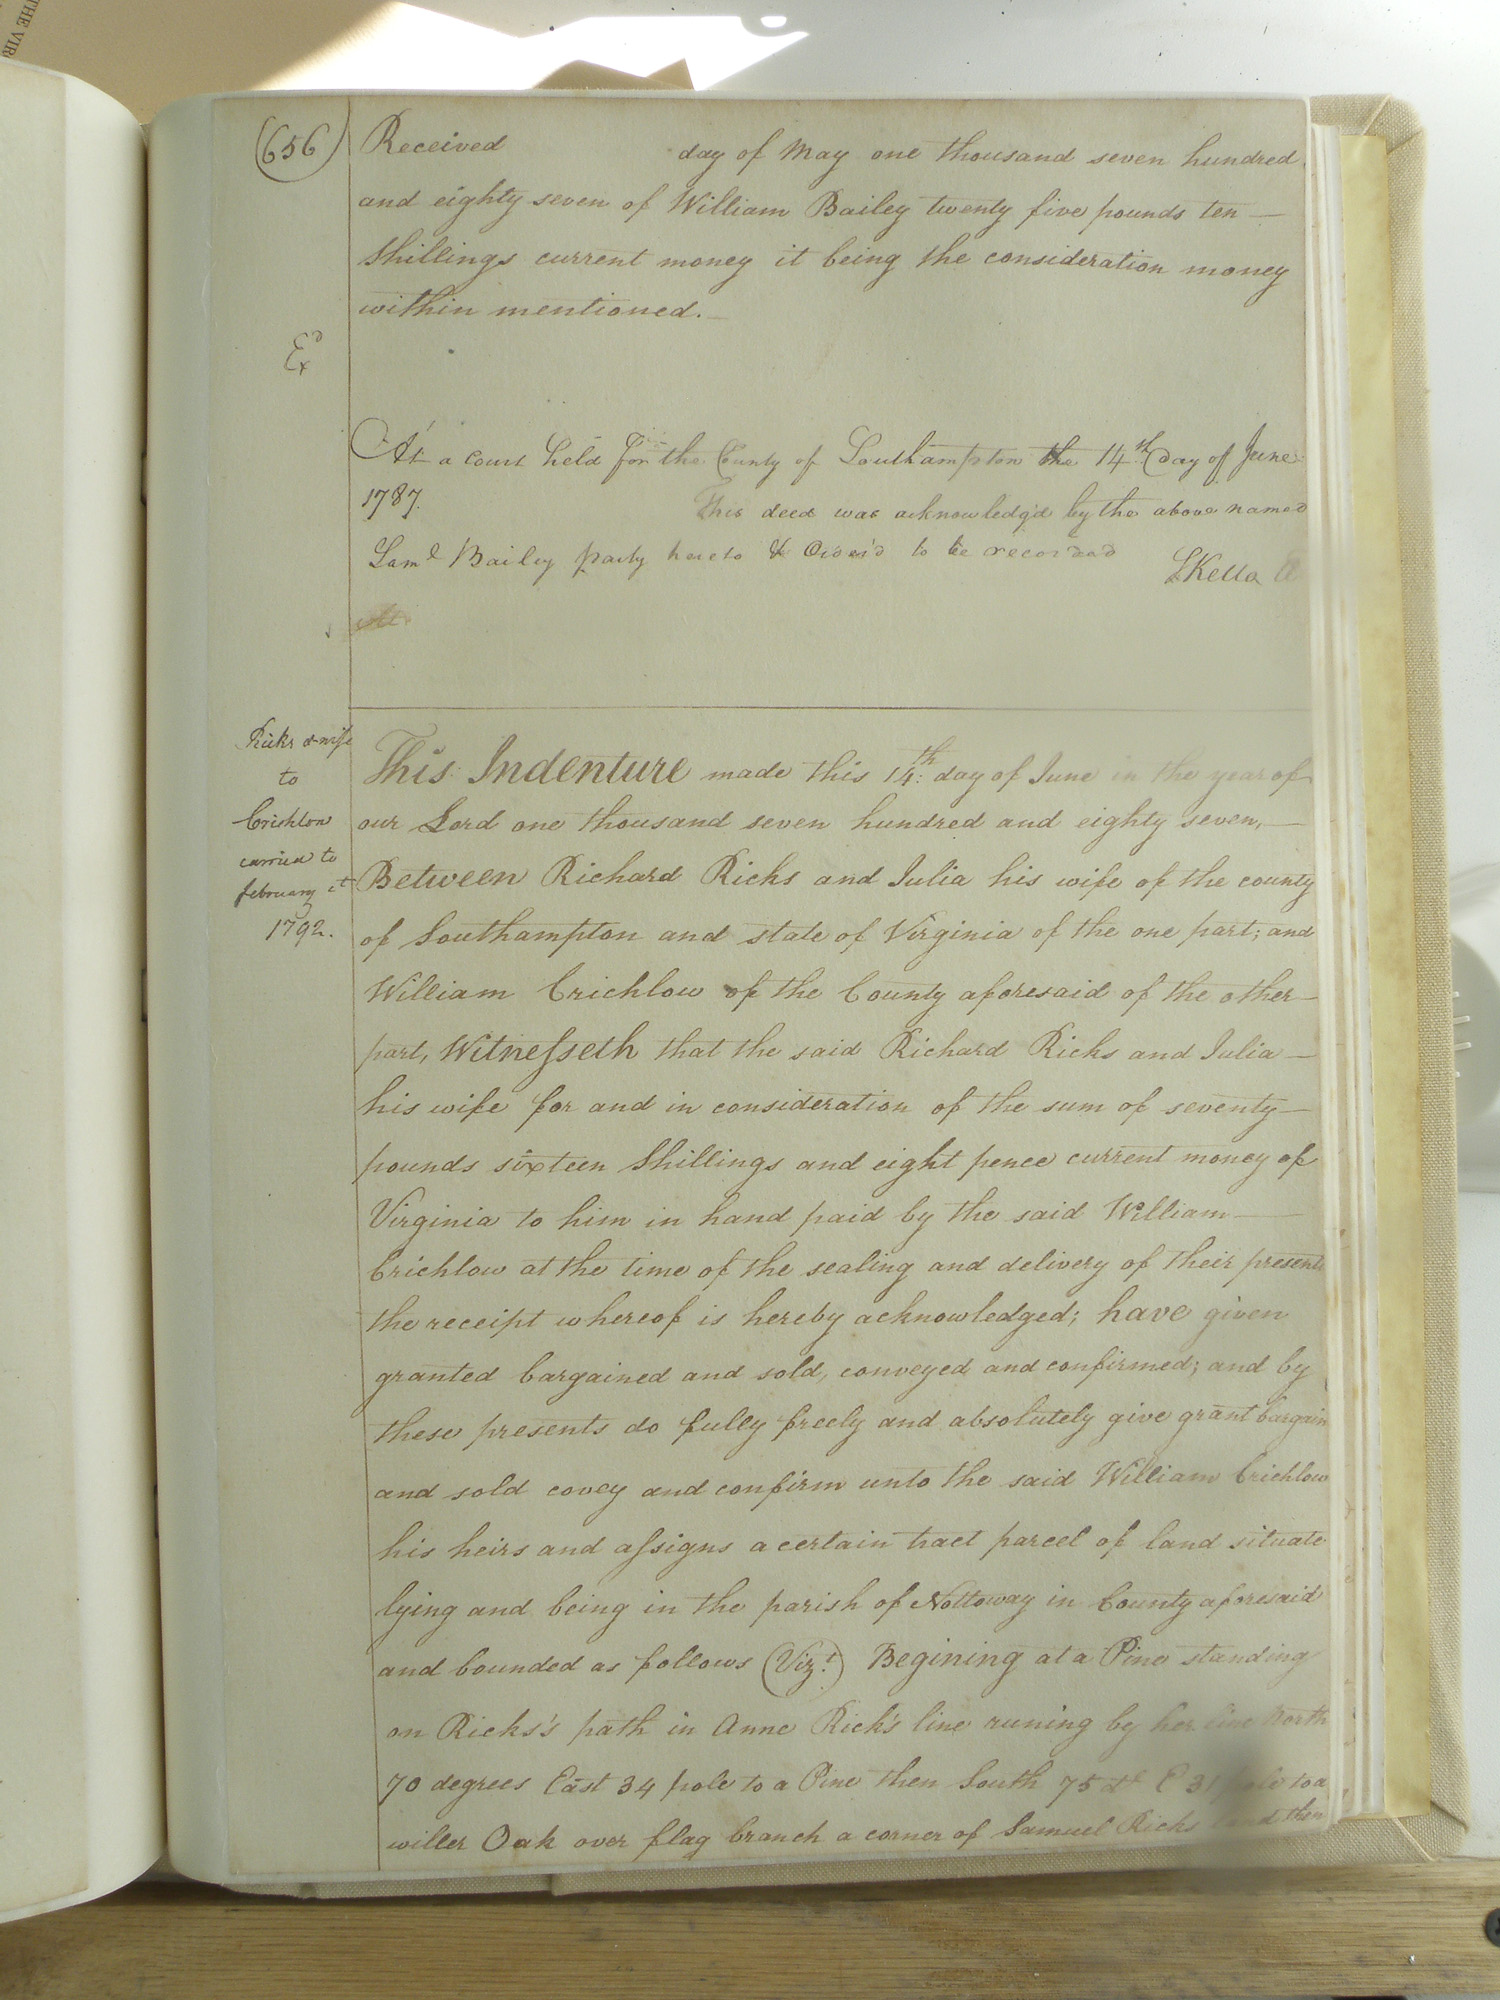 THE VIR
(656)
Received day of May one thousand seven hundred
and eighty seven of William Bailey twenty five pounds ten
Shillings current money it being the consideration money
within mentioned.
Exd
At a Court held for the County of Southampton the 14th day of June
1787. This deed was acknowledg'd by the above named
Saml Bailey party hereto & Order'd to be recorded
SKello
Ricks & wife
to
Crichlow
carried to
february ct
1792.
This Indenture made this 14th: day of June in the year of
our Lord one thousand seven hundred and eighty seven,
Between Richard Ricks and Julia his wife of the county
of Southampton and state of Virginia of the one part; and
William Crichlow of the County aforesaid of the other
part, Witnesseth that the said Richard Ricks and Julia
his wife for and in consideration of the sum of seventy
pounds sixteen Shillings and eight pence current money of
Virginia to him in hand paid by the said William
Crichlow at the time of the sealing and delivery of their presents
the receipt whereof is hereby acknowledged; have given
granted bargained and sold, conveyed and confirmed; and by
these presents do fully freely and absolutely give grant bargain
and sold covey and confirm unto the said William Crichlow
his heirs and assigns a certain tract parcel of land situate
lying and being in the parish of Nottoway in County aforesaid
and bounded as follows (Vizt.) Begining at a Pine standing
on Ricks's path in Anne Rick's line runing by her line North
70 degrees East 34 pole to a Pine then South 75 dt E 31 pole to a
willer Oak over flag branch a corner of Samuel Ricks land then